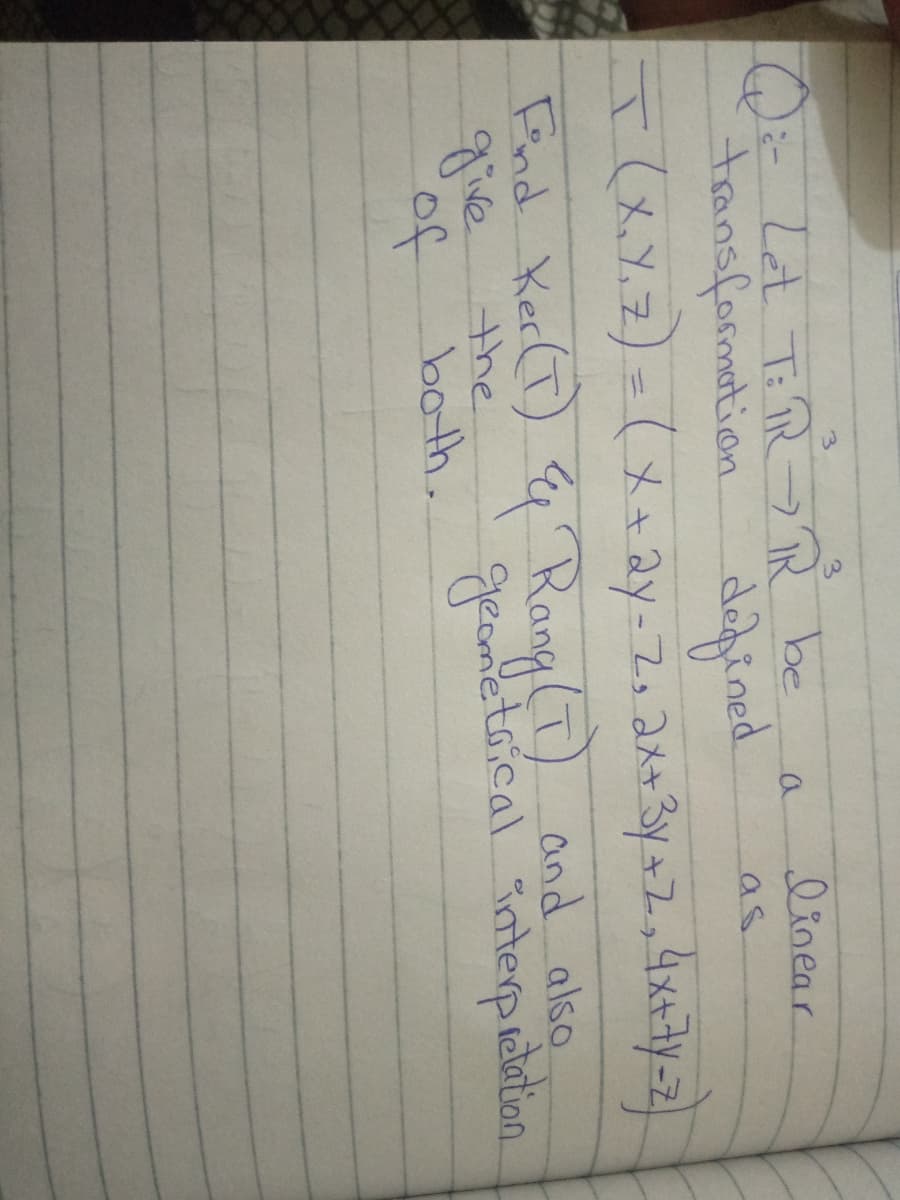 Q:- Let T: ℝ³ → ℝ³ be a linear
transformation defined as
T(x, y, z) = (x + 2y - z, 2x + 3y + z, 4x + 7y - z)
Find Ker(T) & Rang(T) and also
give the geometrical interpretation
of both.